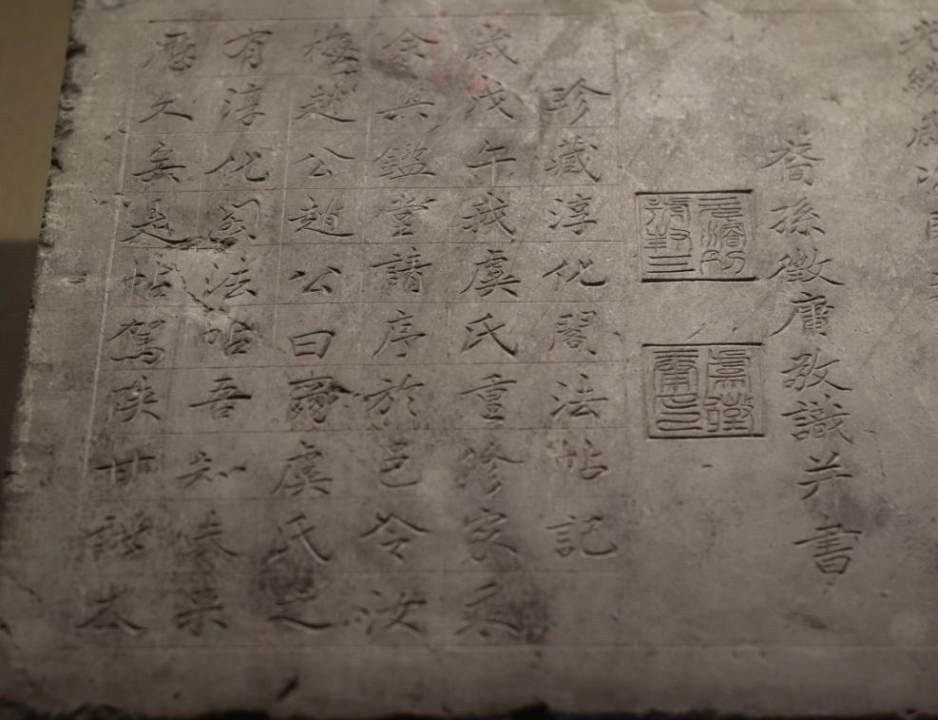 光緒歲次
裔孫徵庸敬識并書
珍藏淳化閣法帖記
歲戊午我虞氏重修家乘
余與鑑堂請序於邑令汝
梅趙公趙公曰虞氏之
有淳化閣法帖吾知
久是帖駕陝甘本